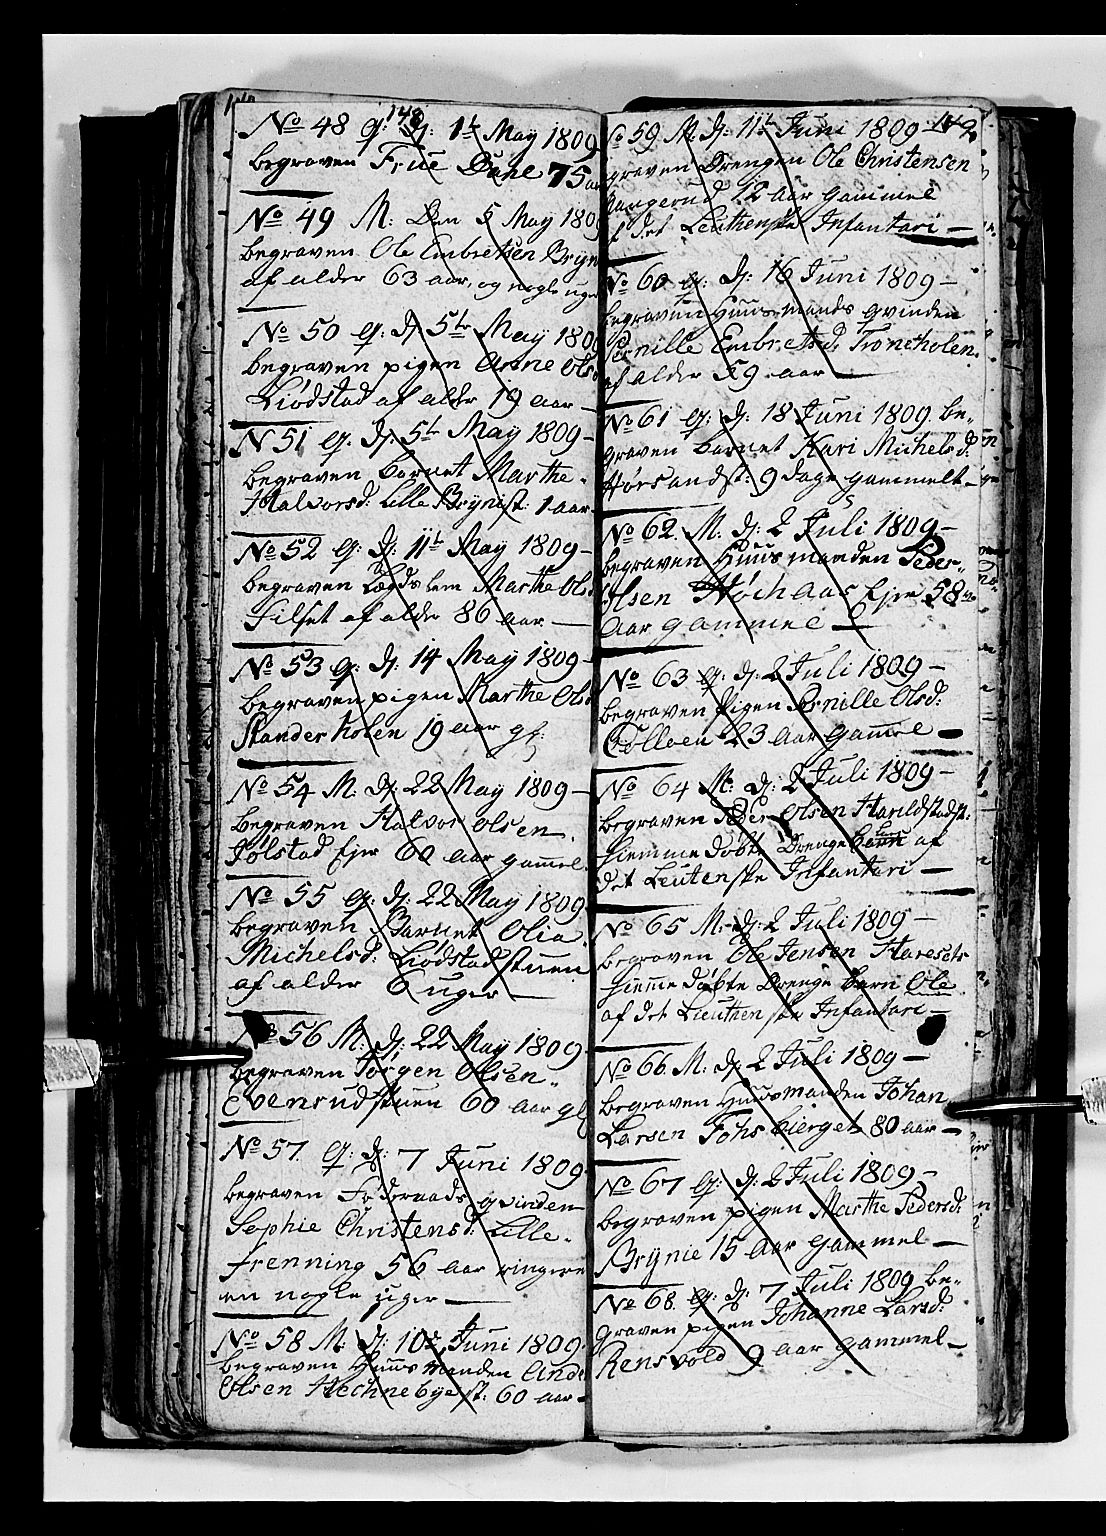 148
No 48 Q: D: 1t May 1809
begraven Frue Dahl 75 aar
No 49 M: Den 5 May 1809
begraven Ole Embretsen Bryn
af alder 63 aar, og nogle uger
No 50 Q: D 5te May 1809
begraven pigen Anne Olsd
Liødstad af alder 19 aar —
N 51 Q. D. 5t May 1809 –
begraven barnet Marthe
Halvorsd: Lille Brÿnist: 1 aar.
No 52 Q: D: 11t May 1809 –
begraven Lægdslem Marthe Olsd
Filset af alder 86 aar —
No 53 Q: D: 14 May 1809 –
begraven pigen Marthe Olsd
Standerholen 19 aar gl:
No 54 M. D: 22 May 1809 –
begraven Halvor Olsen
Jølstad Ejer 60 aar gamel.
No 55 Q: D: 22 May 1809
begraven Barnet Olia
Michelsd: Liødstadstuen
af alder 6 uger —
No 56 M: D: 22 May 1809
begraven Jørgen Olsen
Evensrudstuen 60 aar gl
No 57. Q: D: 7 Juni 1809
begraven Føderaads qvinden
Sophie Christensd: Lille
frenning 56 aar ringere
en nogle uger —
No 58 M: D: 10de Juni 1809
begraven Huusmanden Ande
Olsen Hechnebye st: 60 aar –
149
No 59 M. D: 11t Juni 1809 –
graven Drengen Ole Christensen
Haugerud 12 aar gammel
af det Leuthenske Infantari —
No 60 Q: D: 16 Juni 1809 –
begraven Huusmands qvinden
Pernille Embretsd: Troneholen.
af alder 59 aar —
No 61 Q: D: 18 Juni 1809 be„
graven barnet Kari Michelsd:
Hørsandst: 9 dage gammelt –
No 62. M. D: 2 Juli 1809 –
begraven Huusmanden Peder„
Olsen Høchaas Ejer 58
Aar gammel —
No 63 Q: D: 2 Juli 1809 –
begraven Pigen Pernille Olsd:
23 Aar gamel —
No 64 M: D: 2 Juli 1809 –
begraven Peder Olsen Harildstadst:
hiemmedøbte Drengebarn af
det Leutenske Infantari —
No 65 M: D: 2 Juli 1809 —
begraven Ole Jensen Haresets
hiemmedøbte Drenge barn Ole
af det Lieuthenske Infantari —
No 66 M: D: 2 Juli 1809 —
begraven Huusmanden Johan
Larsen Fohsbierget 80 aar —
No 67 Q: D: 2 Juli 1809 –
begraven pigen Marthe Pedersd:
Brÿnie 15 Aar gammel —
No 68. Q: D: 7 Juli 1809 be„
graven pigen Johanne Larsd:
Rensvold 9 aar gammel –